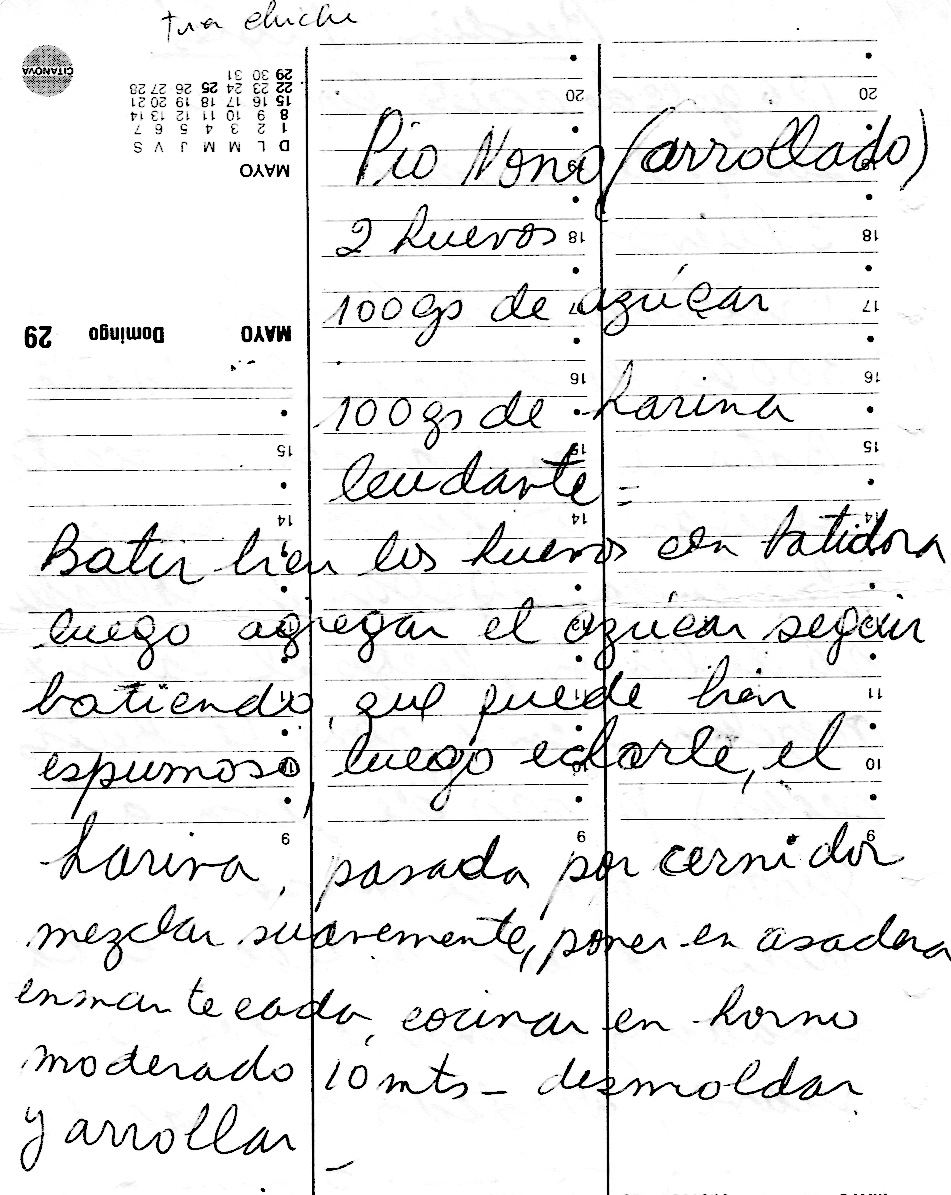 tia chiche
CITANOVA
MAYO
D L M M J V S
1 2 3 4 5 6 7
8 9 10 11 12 13 14
15 16 17 18 19 20 21
22 23 24 25 26 27 28
29 30 31
29 Domingo MAYO
Pio Nono (arrollado)
2 huevos
100gs de azúcar
100gs de harina
leudante =
Batir bien los huevos con batidora
luego agregar el azúcar seguir
batiendo, que puede bien
espumoso, luego echarle, el
harina, pasada por cernidor
mezclar suavemente, poner en asadera
enmantecada, cocinar en horno
moderado 10 mts - desmoldar
y arrollar -